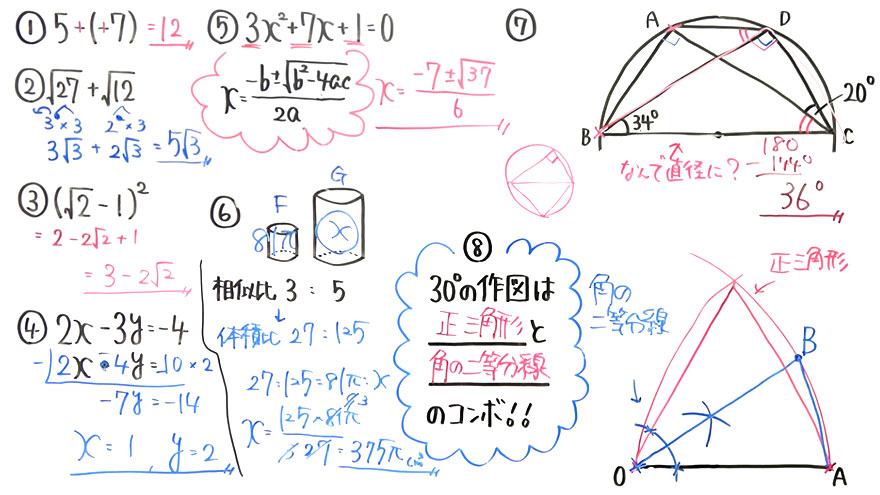 ① 5+(+7) = 12
② √27+√12
3²×3 2²×3
3√3 + 2√3 = 5√3
③ (√2-1)²
= 2-2√2+1
= 3-2√2
④ 2x-3y=-4
-) 2x+4y=10 ×2
-7y=-14
x=1, y=2
⑤ 3x²+7x+1=0
x= -b±√b²-4ac / 2a
x= -7±√37 / 6
⑥
F G
81π x
相似比 3:5
↓
体積比 27:125
27:125=81π:x
x= 125×81π / 27 = 375π cm³
3
⑦
A D
20°
B 34° C
なんで直径に?
180
-144°
36°
⑧
30°の作図は
正三角形と
角の二等分線
のコンボ!!
角の
二等分線
正三角形
B
O A